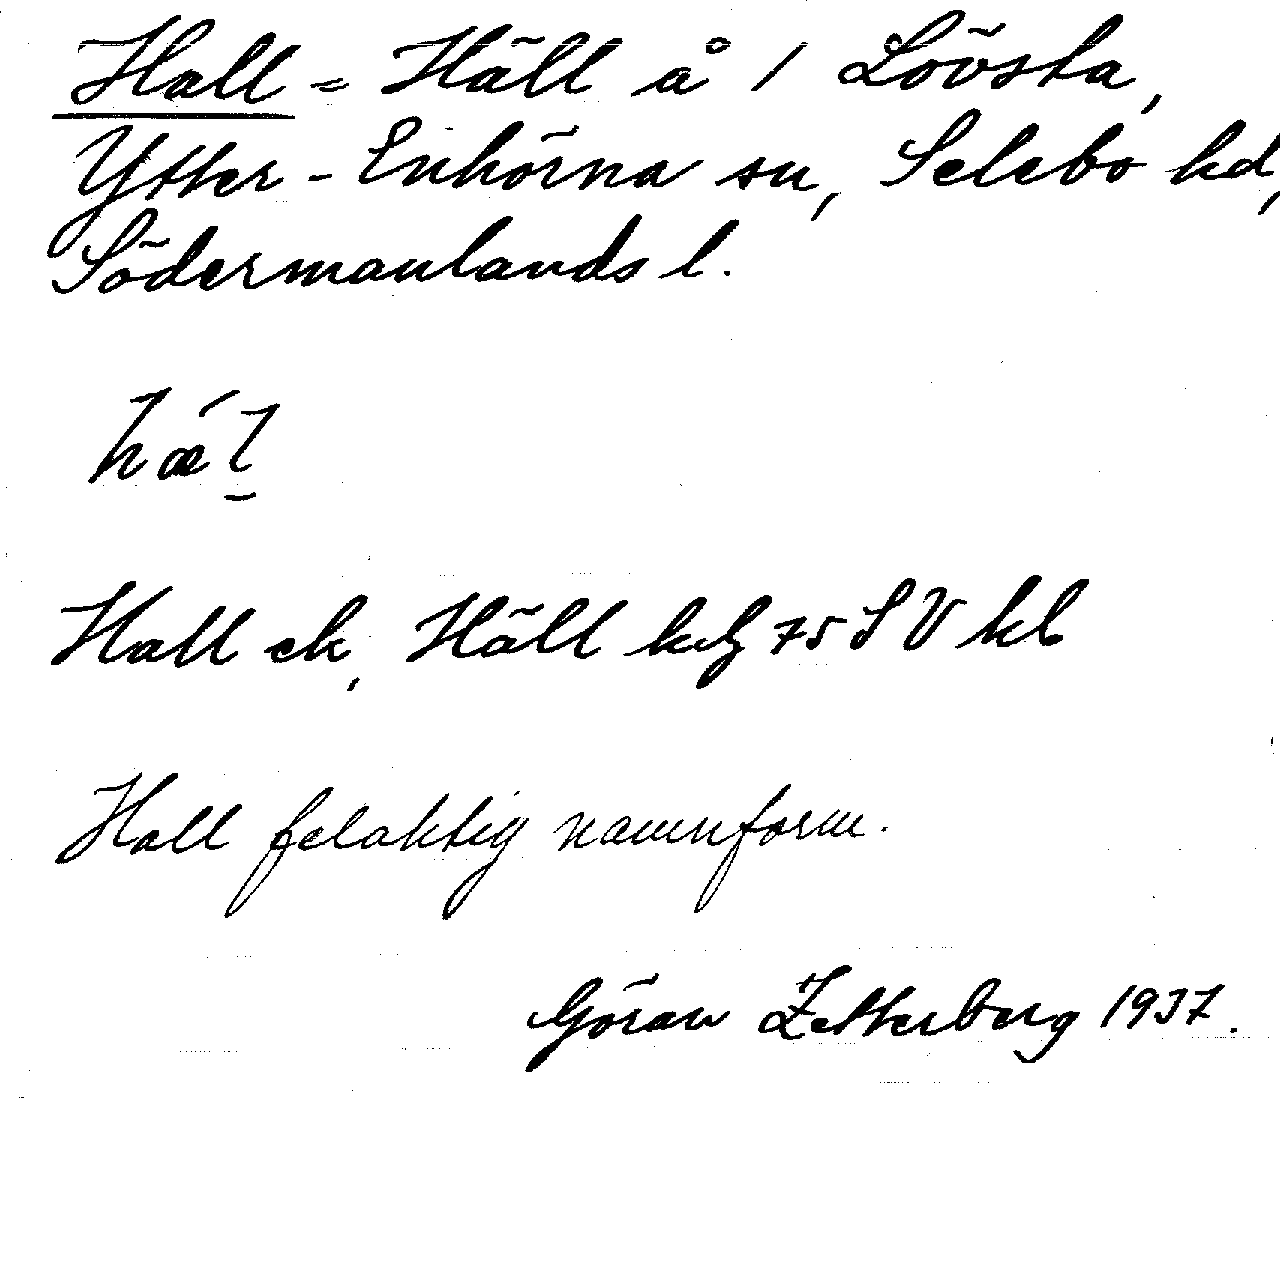 Hall = Häll å 1 Lövsta,
Ytter-Enhörna sn, Selebo hd,
Södermanlands l.
hǽl̠
Hall ek, Häll 75 SV kb
Hall felaktig namnform.
Göran Zetterberg 1937.